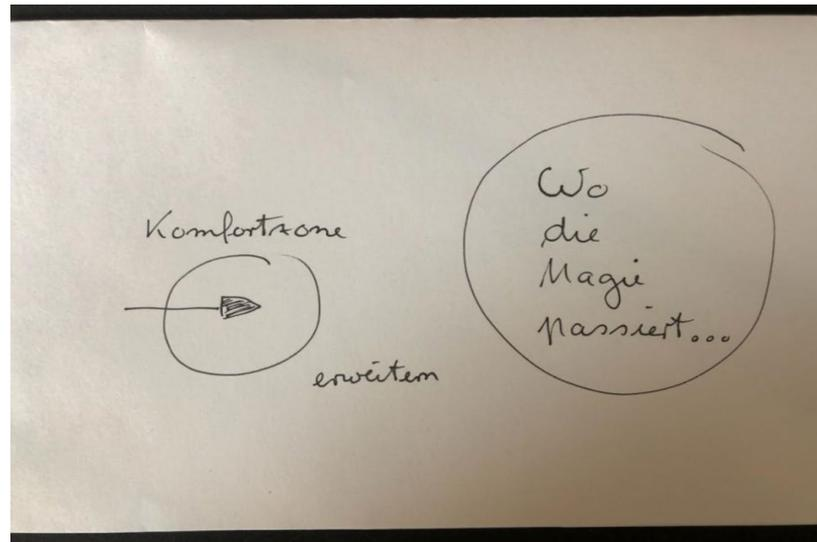 Komfortzone
erweitern
Wo
die
Magie
passiert...